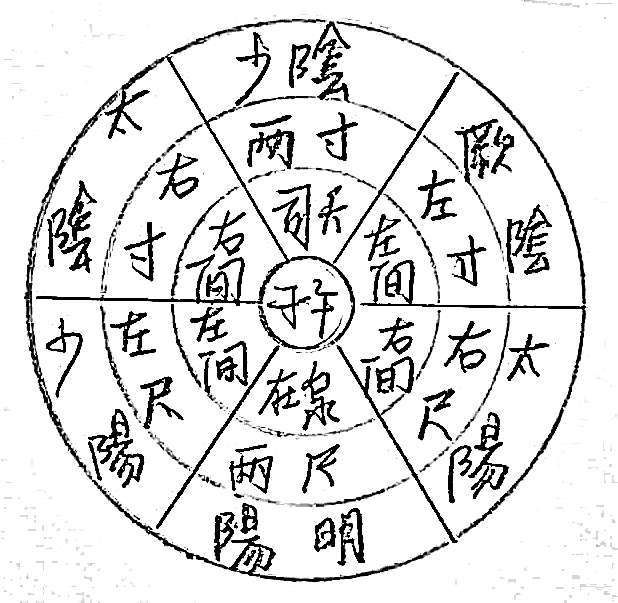 少陰
两寸
司天
厥陰
左寸
左間
太陽
右尺
右間
在泉
两尺
陽明
少陽
左尺
左間
太陰
右寸
右間
子午